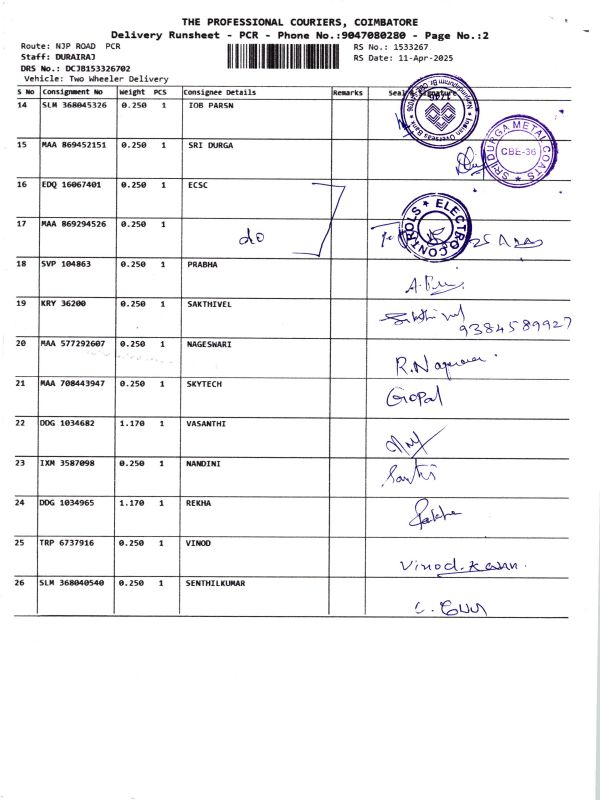 THE PROFESSIONAL COURIERS, COIMBATORE
Delivery Runsheet - PCR - Phone No.:9047080280 - Page No.:2
Route: NJP ROAD PCR
RS No.: 1533267
Staff: DURAIRAJ
RS Date: 11-Apr-2025
DRS No.: DCJB153326702
Vehicle: Two Wheeler Delivery
S No Consignment No Weight PCS Consignee Details Remarks Seal Signature
14 SLM 368045326 0.250 1 IOB PARSN
15 MAA 869452151 0.250 1 SRI DURGA
SRI DURGA METAL COATS
CBE-36
16 EDQ 16067401 0.250 1 ECSC
17 MAA 869294526 0.250 1 do
ELECTRO CONTROLS
18 SVP 104863 0.250 1 PRABHA
19 KRY 36200 0.250 1 SAKTHIVEL Sakthivel
9384589927
20 MAA 577292607 0.250 1 NAGESWARI
21 MAA 708443947 0.250 1 SKYTECH Gopal
22 DDG 1034682 1.170 1 VASANTHI
23 IXM 3587098 0.250 1 NANDINI
24 DDG 1034965 1.170 1 REKHA
25 TRP 6737916 0.250 1 VINOD Vinod.
26 SLM 368040540 0.250 1 SENTHILKUMAR